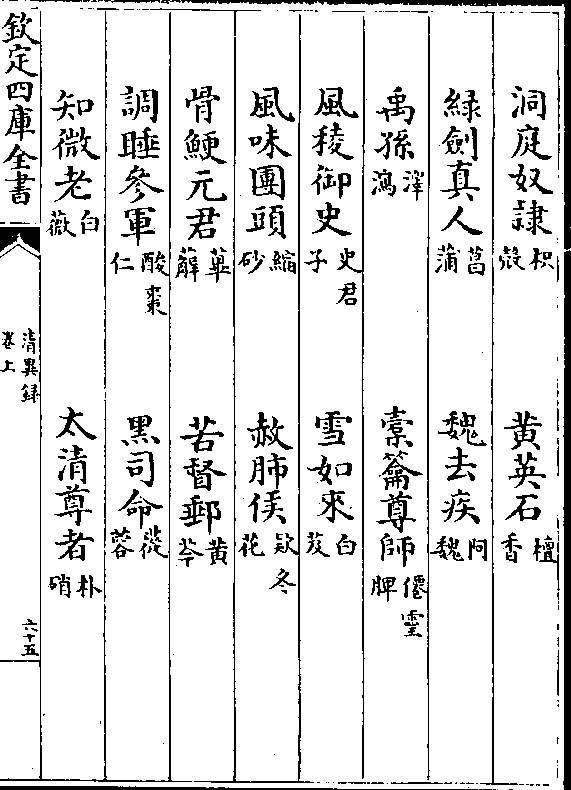 洞庭奴隷枳殻　黄英石檀香
緑劍真人菖蒲　魏去疾阿魏
禹孫澤瀉　橐籥尊師僊靈脾
風稜御史史君子　雪如來白芨
風味團頭縮砂　赦肺侯欵冬花
骨鯁元君萆薢　苦督郵黄芩
調睡參軍酸棗仁　黒司命蓯蓉
知微老白薇　太清尊者朴硝
欽定四庫全書
清異録
卷上
六十五